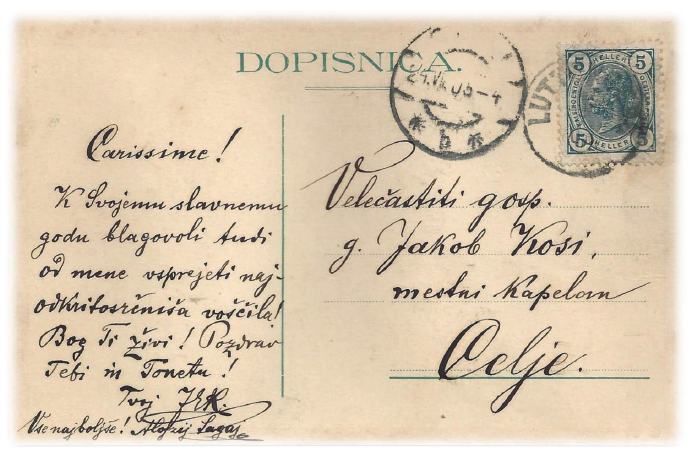 DOPISNICA.
24.VII.05-4
* b *
LUT
5 HELLER 5
5 HELLER 5
Carissime!
K Svojemu slavnemu
godu blagovoli tudi
od mene vsprejeti naj-
odkritosrčniša voščila!
Bog Ti živi! Pozdrav
Tebi in Tonetu!
Tvoj
Vse najboljše! Alojzij
Velečastiti gosp.
g. Jakob Kosi,
mestni kapelan
Celje.